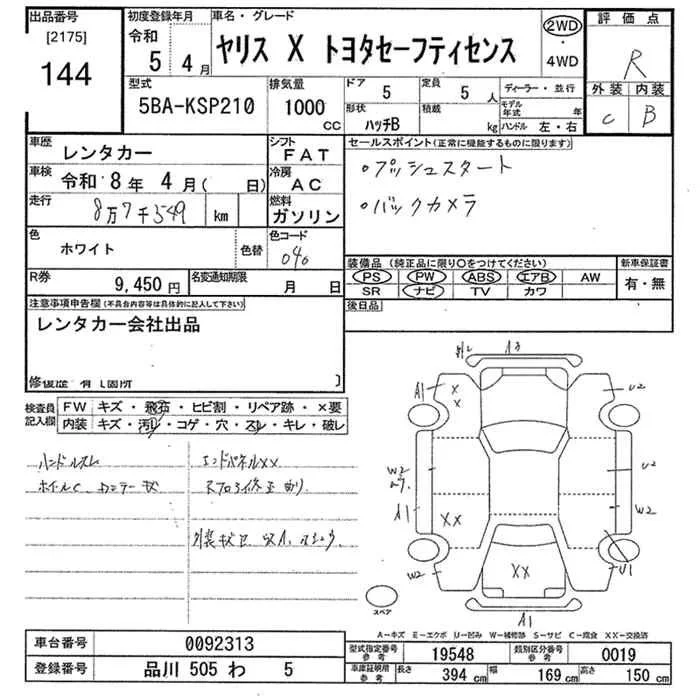 出品番号
[2175]
144
初度登録年月
令和
5 4月
車名・グレード
ヤリス X トヨタセーフティセンス
2WD
・
4WD
評価点
R
外装 内装
C B
型式
5BA-KSP210
排気量
1000
CC
ドア
5
定員
5 人
形状
ハッチB
積載
kg
ディーラー・並行
モデル年式 年
ハンドル 左・右
車歴
レンタカー
シフト
FAT
車検
令和 8年 4月( 日)
冷房
AC
走行
8万7千549 km
燃料
ガソリン
色
ホワイト
色替
色コード
040
R券
9,450円
名変通知期限
月 日
セールスポイント(正常に機能するものに限ります)
○プッシュスタート
○バックカメラ
装備品(純正品に限り○をつけてください)
PS PW ABS エアB AW
SR ナビ TV カワ
新車保証書
有・無
後日品
注意事項申告欄(不具合内容等は具体的に記入して下さい)
レンタカー会社出品
修復歴 有〔箇所 〕
検査員
記入欄
FW キズ・飛石・ヒビ割・リペア跡・×要
内装 キズ・汚レ・コゲ・穴・スレ・キレ・破レ
ハンドルスレ
エンドパネルXX
A1
U2
A1
XX
W2
U2
W2
A1
XX
XX
W2
U1
A1
スペア
A-キズ E-エクボ U-凹み W-補修跡 S-サビ C-腐食 XX-交換済
車台番号
0092313
登録番号
品川 505 わ 5
型式指定番号
参考
19548
類別区分番号
参考
0019
車庫証明用
参考
長さ 394 cm
幅 169 cm
高さ 150 cm